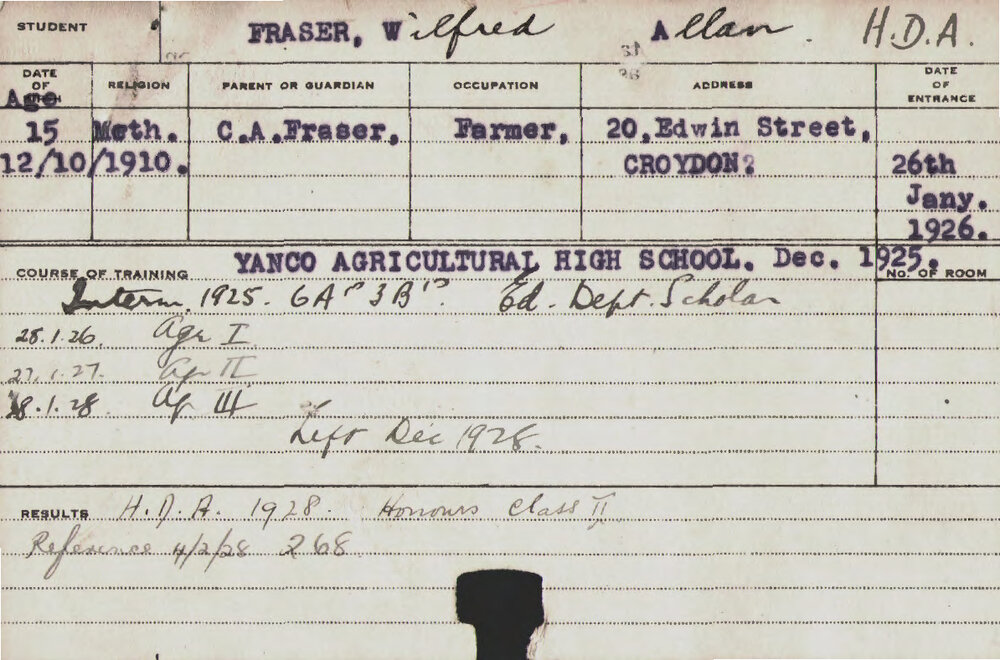 STUDENT FRASER, Wilfred Allan. H.D.A.
DATE OF RELIGION PARENT OR GUARDIAN OCCUPATION ADDRESS DATE OF ENTRANCE
Age
15 Meth. C.A.Fraser, Farmer, 20,Edwin Street,
12/10/1910. CROYDON? 26th
Jany.
1926.
YANCO AGRICULTURAL HIGH SCHOOL. Dec. 1925.
COURSE OF TRAINING No. OF ROOM
Interm. 1925. 6A's 3B's Ed. Dept. Scholar
28.1.26. Agr I
27.1.27. Agr II
28.1.28. Ag III
Left Dec 1928.
RESULTS H.D.A. 1928. Honours Class II
Reference 4/2/28 268